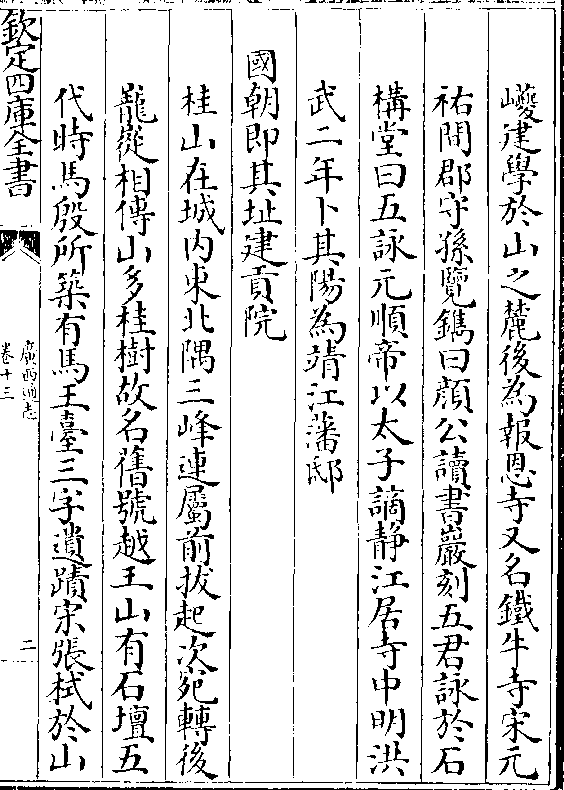 巙建學於山之麓後為報恩寺又名鐵牛寺宋元
祐間郡守孫覽鐫曰顏公讀書巖刻五君詠於石
構堂曰五詠元順帝以太子謫靜江居寺中明洪
武二年卜其陽為靖江藩邸
國朝即其址建貢院
桂山在城内東北隅三峰連屬前拔起次宛轉後
巃嵸相傳山多桂樹故名舊號越王山有石壇五
代時馬殷所築有馬王臺三字遺蹟宋張栻於山
欽定四庫全書
廣西通志
卷十三
二